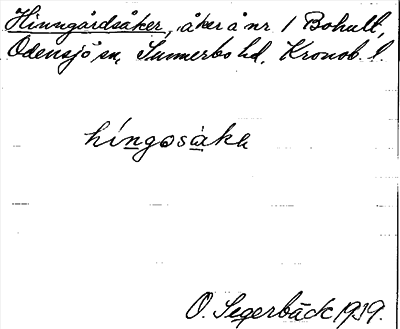 Hinngårdsåker, åker å nr 1 Bohult,
Odensjö sn, Sunnerbo hd, Kronob. l.
híngosàkɐ
O. Segerbäck 1939.